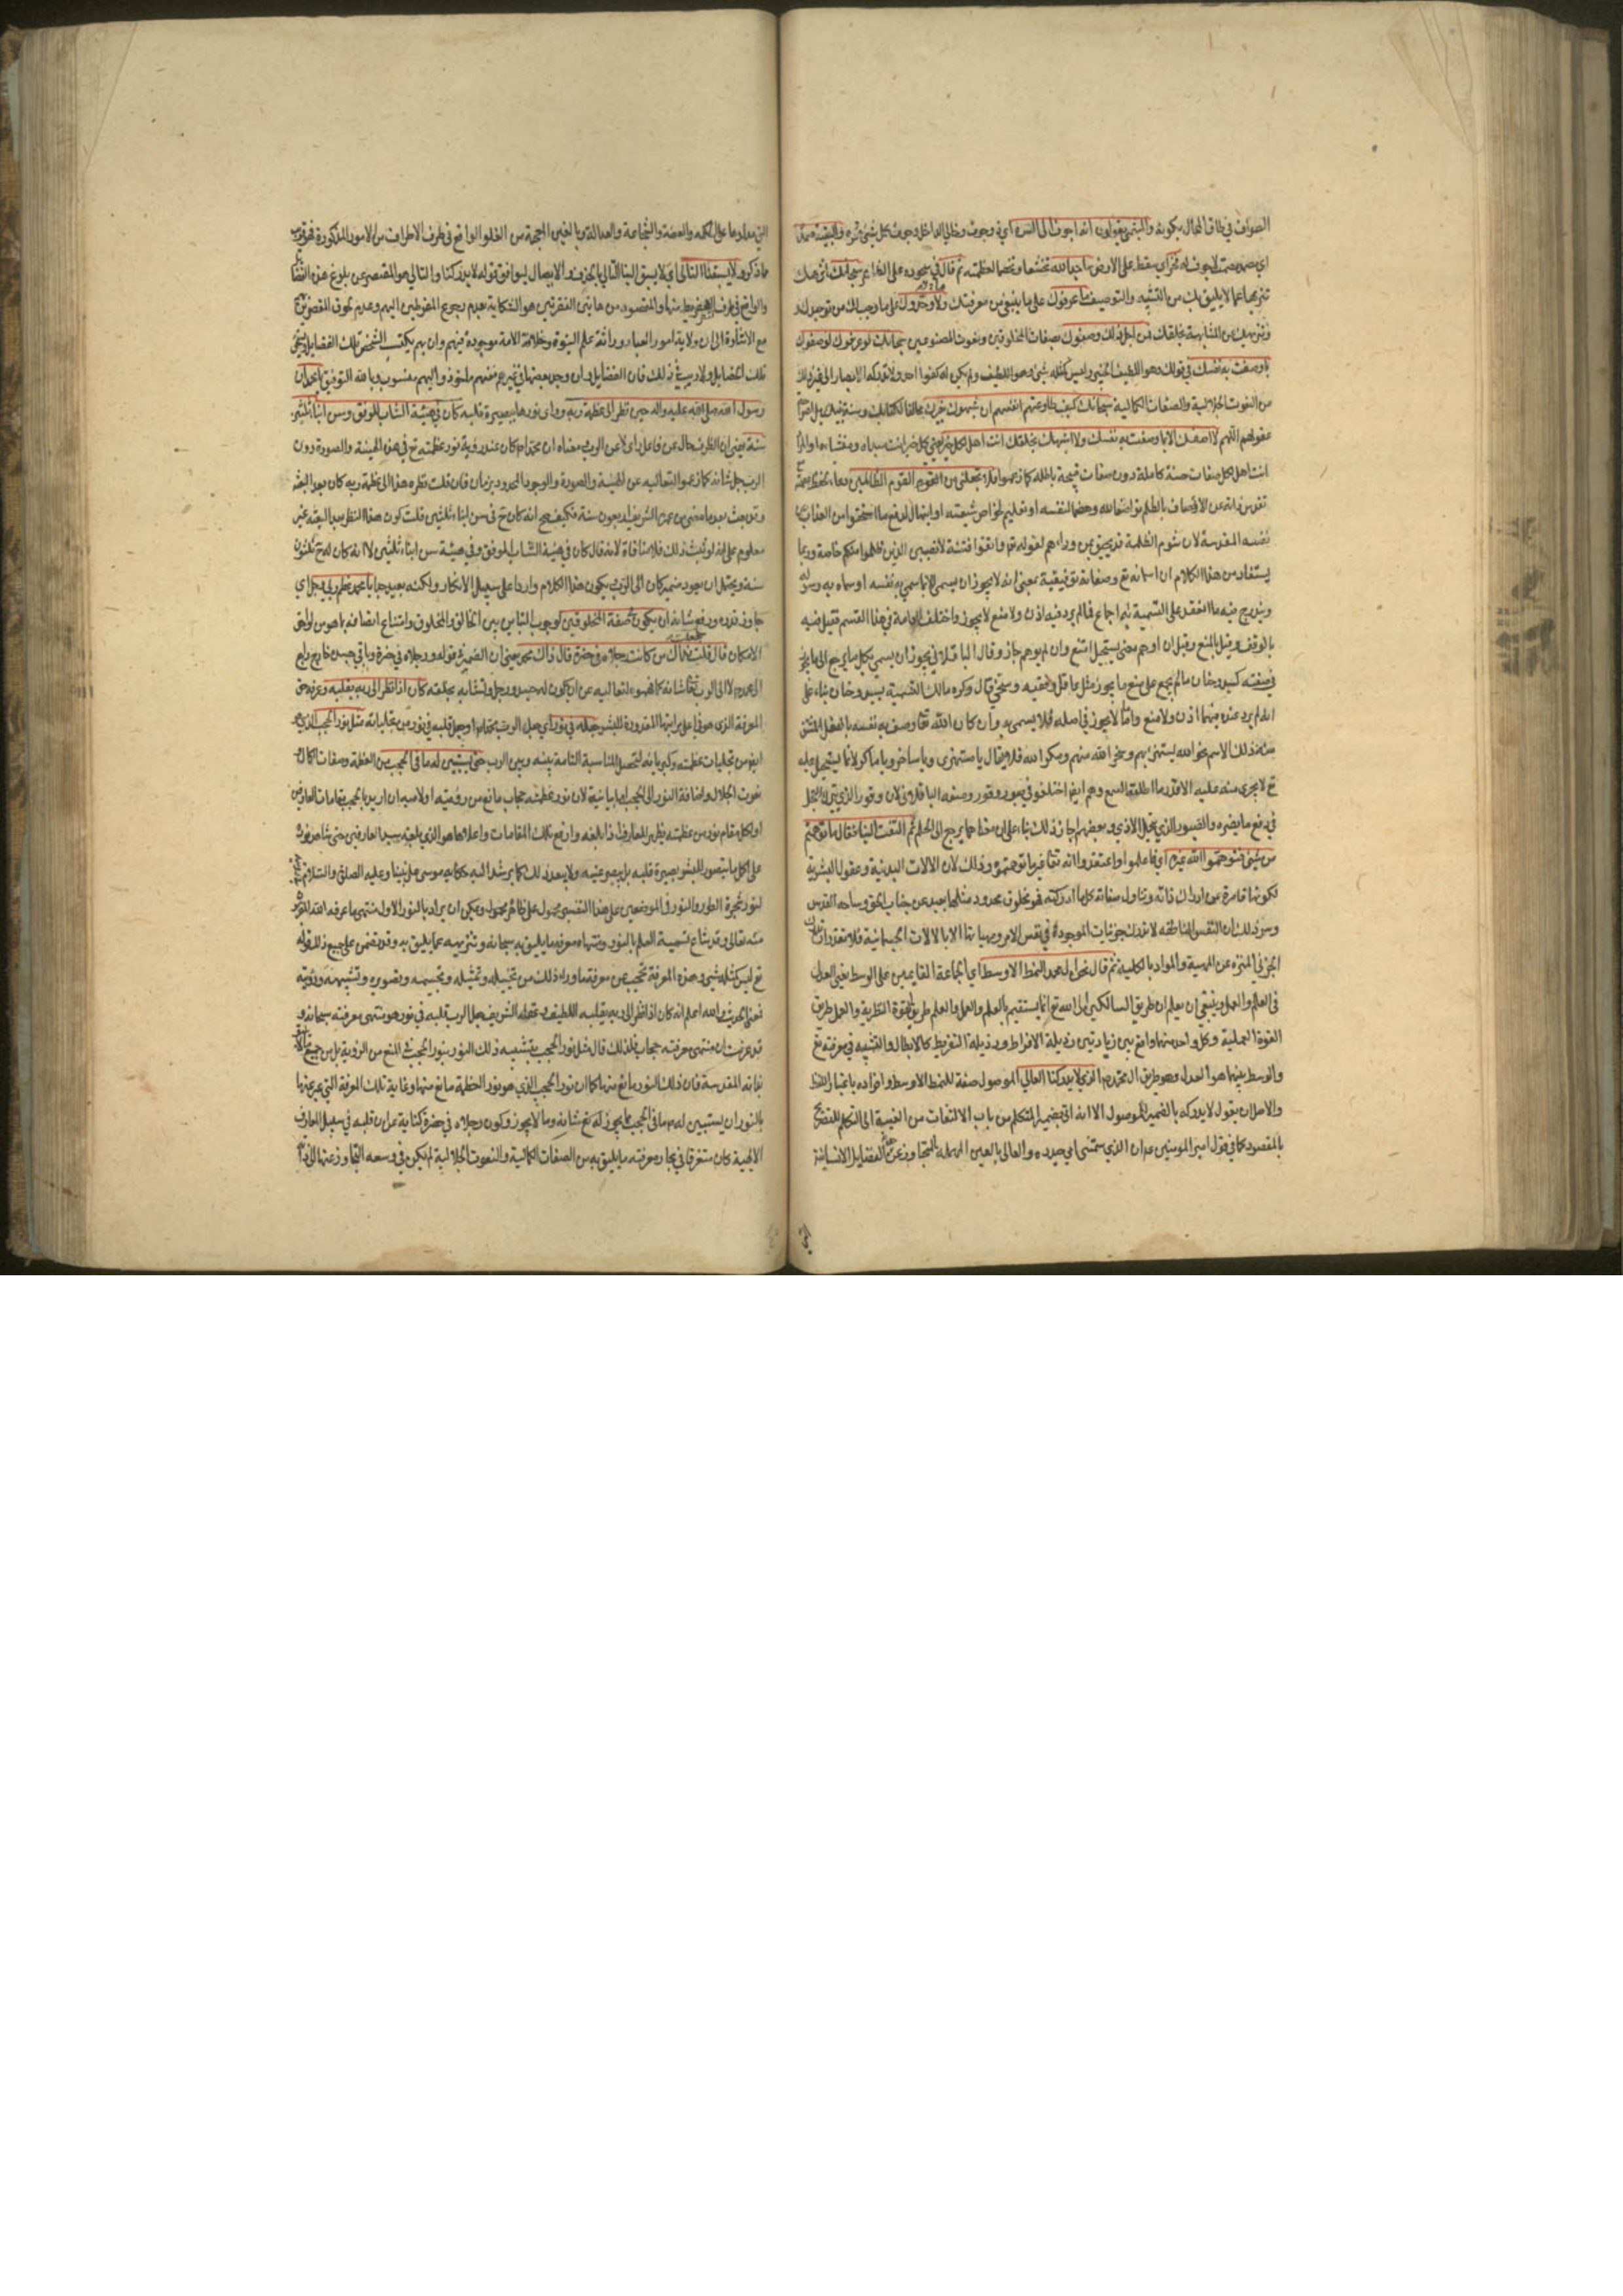 الصواف في طاق المحال يكونه والميثمي يقولون انه اجوف الى السرة اي ذو جوف وخالي الداخل وجوف كل شئ قعره والبقية صمد
اي مصمت لا جوف له فخر اي سقط على الارض ساجدا لله تخشعا وتخضعا لعظمته ثم قال في سجوده على الظاهر سبحانك اي نزهتك
تنزيها عما لا يليق بك من التشبيه والتوصيف ما عرفوك على ما ينبغي من معرفتك ولا وحدوك على ما وجب لك من توحيدك
وتنزيهك عن المشابهة بخلقك فمن اجل ذلك وصفوك بصفات المخلوقين ونعوت المصنوعين سبحانك لو عرفوك لوصفوك
بما وصفت به نفسك في قولك وهو اللطيف الخبير وليس كمثله شئ وهو اللطيف ولم يكن له كفوا احد ولا تدركه الابصار الى غير ذلك
من النعوت الجلالية والصفات الكمالية سبحانك كيف طاوعتهم انفسهم ان شبهوك بغيرك مخالفا لكتابك وسنة نبيك
عقولهم اللهم لا اصفك الا بما وصفت به نفسك ولا اشبهك بخلقك انت اهل لكل خير يعني كل خير انت مبداه ومنشاه
انت اهل لكل صفات حسنة كاملة دون صفات قبيحة باطلة كما زعموا فلا تجعلني من القوم الظالمين
تقدس ذاته عن الاتصاف بالظلم تواضعا لله وهضما لنفسه او تعليم لخواص شيعته او ابتهال لدفع ما استحقوا من العذاب عن
نفسه المقدسة لان شوم الظلمة قد يحيق بمن وراءهم لقوله تع واتقوا فتنة لا تصيبن الذين ظلموا منكم خاصة وربما
يستفاد من هذا الكلام ان اسمائه تع وصفاته توقيفية بمعنى انه لا يجوز ان يسمى الا بما سمى به نفسه او سماه به رسوله
ويندرج فيه ما انعقد على التسمية به اجماع فما لم يرد فيه اذن ولا منع لا يجوز واختلف العامة في هذا القسم فقيل فيه
بالوقف وقيل بالمنع وقيل ان اوهم معنى يستحيل امتنع وان لم يوهم جاز وقال الباقلاني يجوز ان يسمى بكل ما يرجع الى ما يجوز
في صفته كسيد وحنان ما لم يجمع على منع ما يجوز مثل عاقل وفقيه وسخي قال وكره مالك التسمية بسيد وحنان بناء على
انه لم يرد عنده فيهما اذن ولا منع واما لا يجوز في اصله فلا يسمى به وان كان الله تعا وصف به نفسه بالفعل المشتق
منه ذلك الاسم نحو الله يستهزئ بهم وسخر الله منهم ومكر الله فلا يقال يا مستهزئ ويا ساخر ويا ماكر لان ما يستحيل عليه
تع لا يجري منه عليه الا قدر ما اطلقه السمع وهم ايضا اختلفوا في صبور ووقور ومنعه الباقلاني لان وقور الذي يترك العجل
في دفع ما يضره والصبور الذي يحتمل الاذي وبعضهم اجاز ذلك بناء على ان معناهما يرجع الى الحلم ثم التفت الينا فقال ما توهمتم
من شئ فتوهموا الله غيره اي فاعلموا او اعتقدوا انه تعا غير ما توهمتموه وذلك لان الالات البدنية وعقول البشرية
لكونها قاصرة عن ادراك ذاته وتناول صفاته كلما ادركته فهو مخلوق محدود مثلها بعيد عن جناب الحق وساحة القدس
ومن ذلك ان النفس الناطقة لا تدرك جزئيات الموجودة في نفس الامر وهيئاتها الا بالالات الجسمانية فلا تقدر ان تدرك
الجزئي المنزه عن المهية والمواد بالكلية ثم قال نحن ال محمد النمط الاوسط اي الجماعة القايمين على الوسط يعني العدل
في العلم والعمل وينبغي ان يعلم ان طريق السالكين الى الله تع انما يستقيم بالعلم والعمل والعلم طريق القوة النظرية والعمل طريق
القوة العملية وكل واحد منهما واقع بين زيادتين رذيلة الافراط ورذيلة التفريط كالابطال والتشبيه في معرفته تع
والوسط بينهما هو العدل وهو طريق ال محمد الذي لا يدركنا الغالي الموصول صفة للنمط الاوسط وافراده باعتبار اللفظ
والاصل ان يقول لا يدركه بالضمير للموصول الا انه اتى بضمير المتكلم من باب الالتفات من الغيبة الى التكلم للتصريح
بالمقصود كما في قول امير المومنين ع ان الذي سمتني امي حيدره والغالي بالغين المهملة المتجاوز عن الفضايل الانسانية
التي مدارها على الحكمة والعفة والشجاعة والعدالة وبالغين المعجمة من الغلو الواقع في طرف الافراط من الامور المذكورة
ما ذكره ولا يسبقنا التالي اي لا يسبق الينا التالي بالحذف والايصال ليوافق قوله لا يدركنا والتالي هو المقصر عن بلوغ هذه
والواقع في طرف التفريط منها والمقصود من هاتين الفقرتين هو الشكاية بعدم رجوع المفرطين اليهم وعدم لحوق المقصرين
مع الاشارة الى ان ولاية امور العباد ووراثة علم النبوة وخلافة الامة موجودة فيهم وان بهم يكتسب الشخص تلك الفضايل
تلك الفضايل ولا ريب في ذلك فان الفضايل وان وجد بعضها في غيرهم فمنهم ماخوذ واليهم منسوب وبالله التوفيق يا محمد ان
رسول الله صلى الله عليه واله حين نظر الى عظمة ربه وراى نورها ببصيرة قلبه كان في هيئة الشاب الموفق وسن ابناء ثلثين
سنة يعني ان الظرف حال عن فاعل راى لا عن الرب معناه ان محمدا كان عند رؤية نور عظمته تع في هذه الهيئة والصورة دون
الرب جل شانه كما زعموا لتعاليه عن الهيئة والصورة والوجود المحدود بزمان فان قلت نظره هذا الى عظمة ربه كان بعد البعثة
وقد بعث بعد ما مضى من عمره الشريف اربعون سنة فكيف يصح انه كان ح في سن ابناء ثلثين قلت كون هذا النظر بعد البعثة غير
معلوم على انه لو ثبت ذلك فلا منافاة لانه قال كان في هيئة الشاب الموفق وفي هيئة سن ابناء ثلثين لا انه كان له ح ثلثون
سنة ويحتمل ان يعود ضمير كان الى الرب ويكون هذا الكلام واردا على سبيل الانكار ولكنه بعيد جدا يا محمد عظم ربي وجل اي
جاوز قدره ورفع شانه ان يكون في صفة المخلوقين لوجوب التباين بين الخالق والمخلوق وامتناع اتصافه بما هو من لواحق
الامكان قال قلت جعلت فداك من كانت رجلاه في خضرة قال ذاك محمد يعني ان الضمير في قوله ورجلاه في خضرة وباقي جسده خارج راجع
الى محمد لا الى الرب تعا شانه كما فهموه لتعاليه عن ان يكون له جسد ورجل وتشابه بخلقه كان اذا نظر الى ربه بقلبه وعرفه حق
المعرفة الذي هو في اعلى مراتبها المقدورة للبشر جعله في نور اي جعل الرب محمدا او جعل قلبه في نور من تجلياته مثل نور الحجب الذي
ايضا من تجليات عظمته وكبريائه لتحصل المناسبة التامة بينه وبين الرب حتى يستبين له ما في الحجب من العظمة وصفات الكمال
نعوت الجلال واضافة النور الى الحجب اما بيانية لان نور عظمته حجاب مانع من رؤيته او لامية ان اريد بالحجب مقامات العارفين
اذ لكل مقام نور من عظمته يظهر للعارف اذا بلغه وارفع تلك المقامات واعلاها هو الذي بلغه سيد العارفين حتى شاهد نوره
على اكمل ما يتصور للبشر ببصيرة قلبه بل ببصر عينيه ولا يبعد ذلك كما يرشد اليه حكاية موسى على نبينا وعليه الصلوة والسلام
لنور شجرة الطور والنور في الموضعين على هذا التفسير محمول على ظاهره ويمكن ان يراد بالنور الاول منتهى ما عرفه الله
منه تعالى وقد شاع تسمية العلم بالنور ومنتهاه معرفة ما يليق به سبحانه وتنزيهه عما يليق به وقد تضمن على جميع ذلك قوله
تع ليس كمثله شئ وهذه المعرفة تحجب عن معرفة ما وراء ذلك من تخييله وتمثيله وتجسيمه وتصويره وتشبيهه ورؤية
فمعنى الحديث والله اعلم انه كان اذا نظر الى ربه بقلبه اللطيف وعقله الشريف جعل الرب قلبه في نور هو منتهى معرفته سبحانه و
قد عرفت ان منتهى معرفته حجاب فلذلك قال مثل نور الحجب بتشبيه ذلك النور بنور الحجب في المنع من الرؤية بل من جميع
بذاته المقدسة فان ذلك النور مانع منها كما ان نور الحجب الذي هو نور العظمة مانع منها وغاية تلك المعرفة التي عبر عنها
بالنور ان يستبين له ما في الحجب مما يجوز له تع شانه وما لا يجوز وكون رجلاه في خضرة كناية عن ان قلبه في سبيل المعارف
الالهية كان مستغرقا في بحار معرفته ما يليق به من الصفات الكمالية والنعوت الجلالية لم يكن في وسعه التجاوز عنها